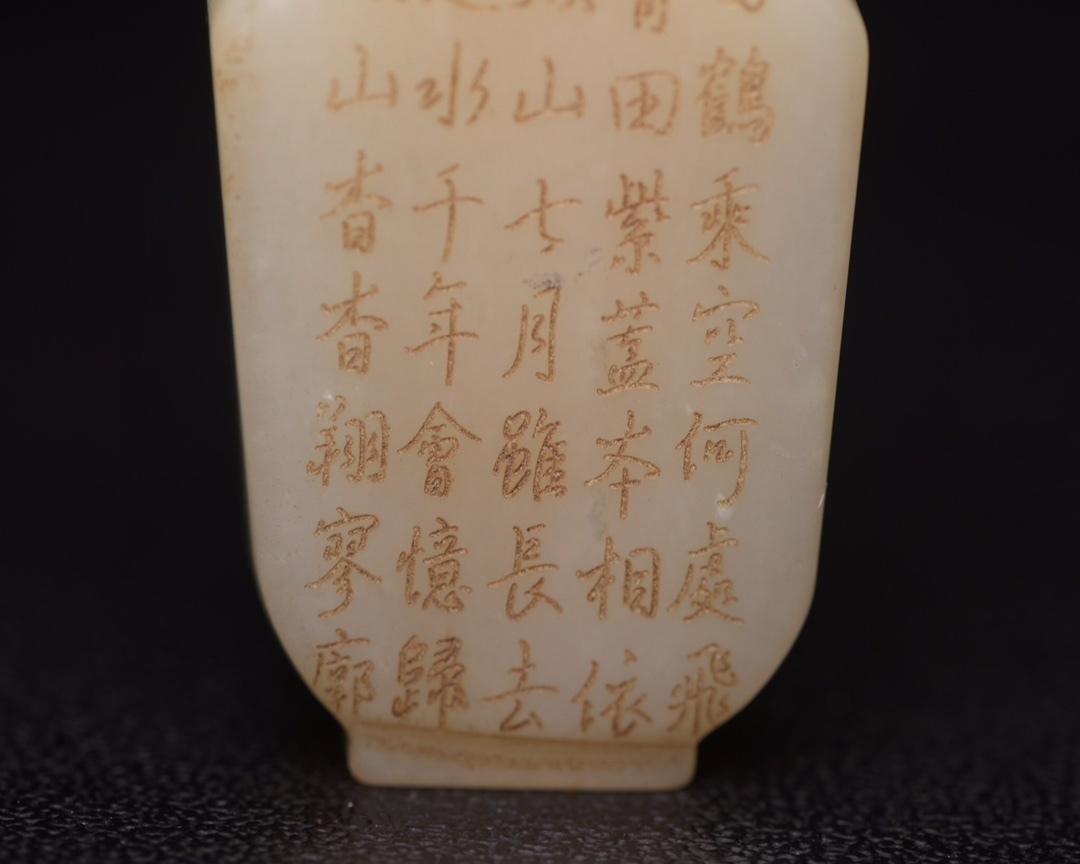 鶴乘空何處飛
田紫蓋本相依
山七月雖長去
水千年會憶歸
山杳杳翔寥廓